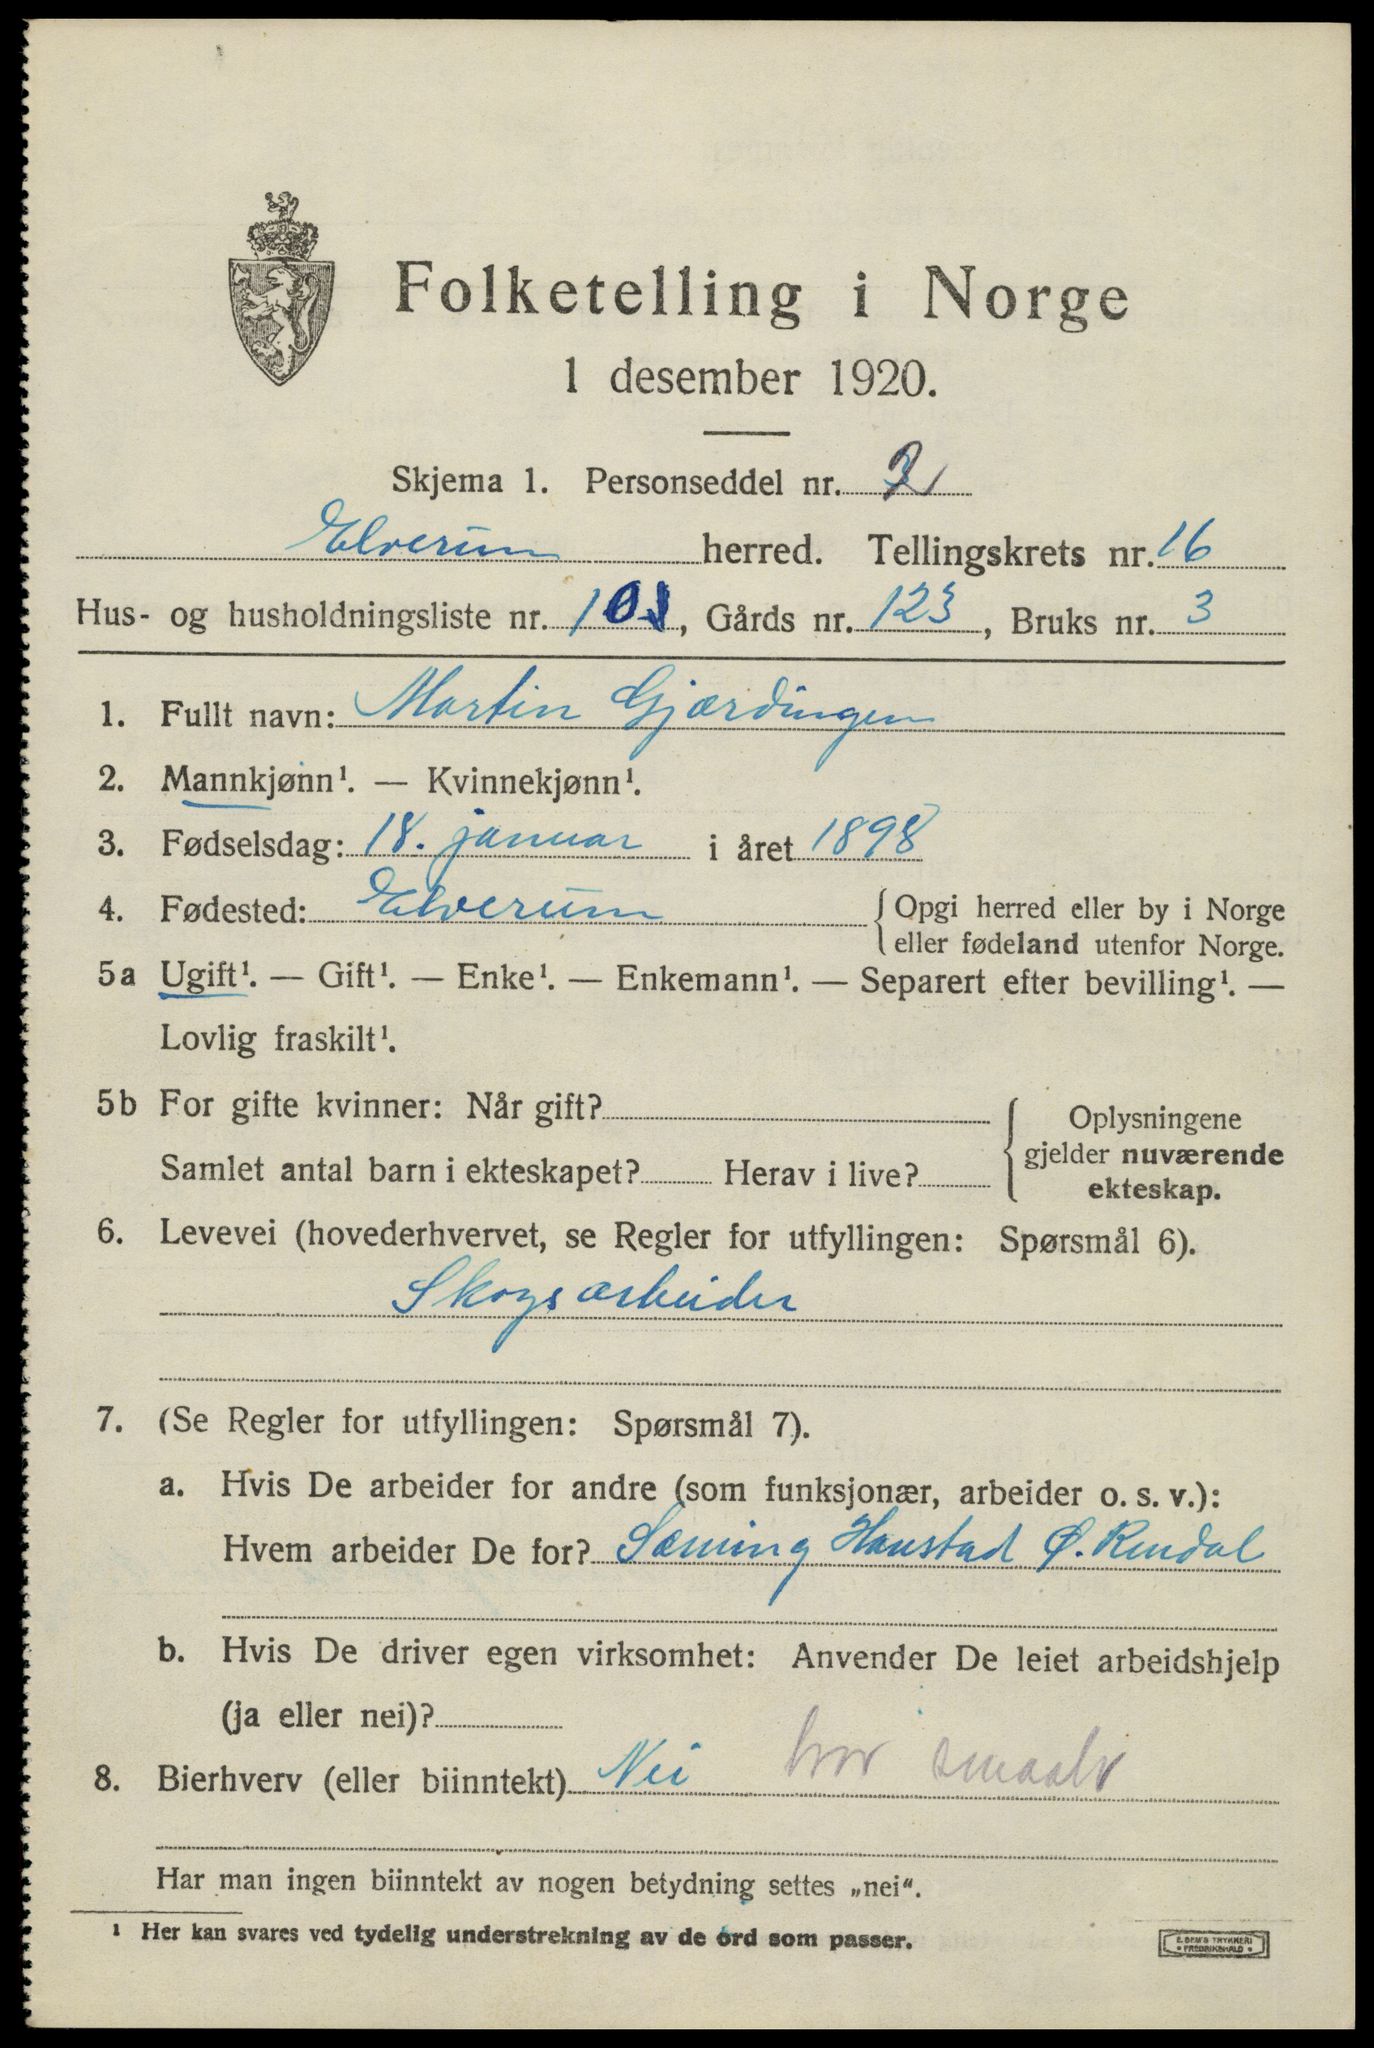 Folketelling i Norge
1 desember 1920.
Skjema 1. Personseddel nr. 2
Elverum herred. Tellingskrets nr. 16
Hus- og husholdningsliste nr. 101, Gårds nr. 123, Bruks nr. 3
1. Fullt navn: Martin Gjærdingen
2. Mannkjønn¹. — Kvinnekjønn¹.
3. Fødselsdag: 18. januar i året 1898
4. Fødested: Elverum {Opgi herred eller by i Norge
eller fødeland utenfor Norge.
5a Ugift¹. — Gift¹. — Enke¹. — Enkemann¹. — Separert efter bevilling¹. —
Lovlig fraskilt¹.
5b For gifte kvinner: Når gift? { Oplysningene
gjelder nuværende
Samlet antal barn i ekteskapet? Herav i live? ekteskap.
6. Levevei (hovederhvervet, se Regler for utfyllingen: Spørsmål 6).
Skogsarbeider
7. (Se Regler for utfyllingen: Spørsmål 7).
a. Hvis De arbeider for andre (som funksjonær, arbeider o. s. v.):
Hvem arbeider De for? Sæming Haustad Ø. Rendal
b. Hvis De driver egen virksomhet: Anvender De leiet arbeidshjelp
(ja eller nei)?
8. Bierhverv (eller biinntekt) Nei
Har man ingen biinntekt av nogen betydning settes „nei“.
¹ Her kan svares ved tydelig understrekning av de ord som passer.
E. SEM'S TRYKKERI
• FREDRIKSHALD •